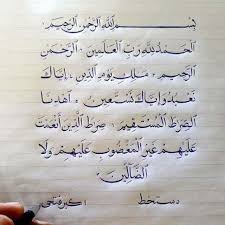 بسم الله الرحمن الرحيم
الحمد لله رب العالمين . الرحمن
الرحيم . ملك يوم الدين . إياك
نعبد وإياك نستعين . اهدنا
الصرط المستقيم . صرط الذين أنعمت
عليهم غير المغضوب عليهم ولا
الضالين
دستخط